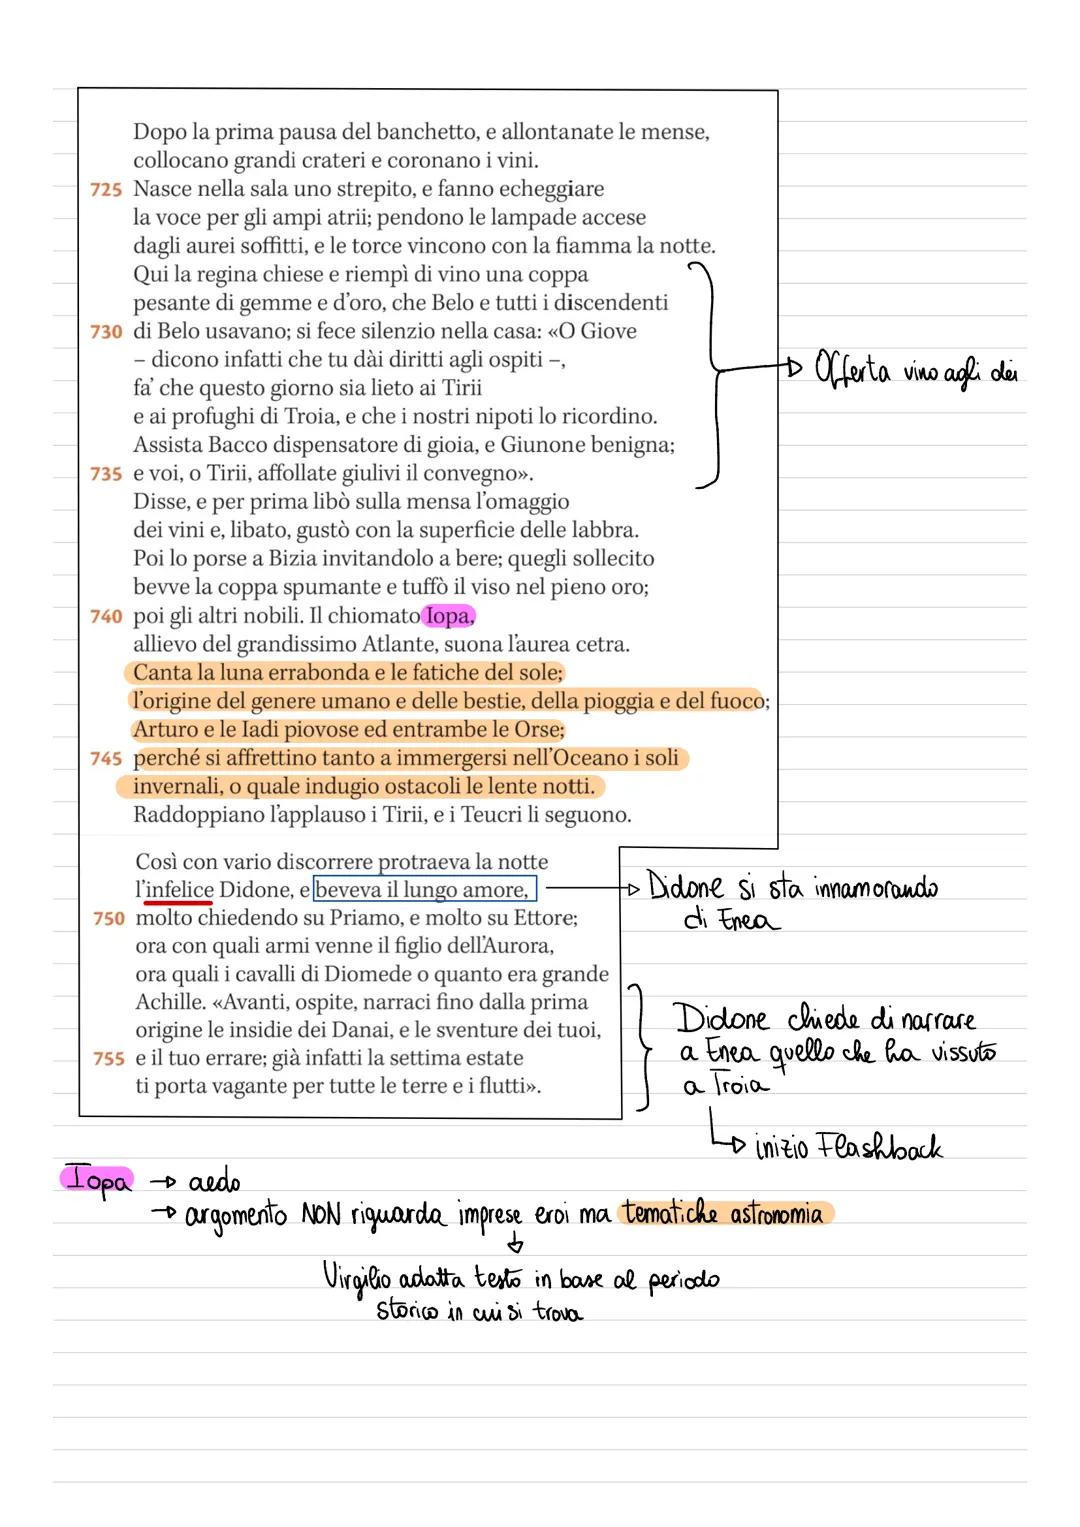 Dopo la prima pausa del banchetto, e allontanate le mense,
collocano grandi crateri e coronano i vini.
725 Nasce nella sala uno strepito, e fanno echeggiare
la voce per gli ampi atrii; pendono le lampade accese
dagli aurei soffitti, e le torce vincono con la fiamma la notte.
Qui la regina chiese e riempì di vino una coppa
pesante di gemme e d'oro, che Belo e tutti i discendenti
730 di Belo usavano; si fece silenzio nella casa: «O Giove
– dicono infatti che tu dài diritti agli ospiti –,
fa' che questo giorno sia lieto ai Tirii
e ai profughi di Troia, e che i nostri nipoti lo ricordino.
Assista Bacco dispensatore di gioia, e Giunone benigna;
735 e voi, o Tirii, affollate giulivi il convegno».
Disse, e per prima libò sulla mensa l'omaggio
dei vini e, libato, gustò con la superficie delle labbra.
Poi lo porse a Bizia invitandolo a bere; quegli sollecito
bevve la coppa spumante e tuffò il viso nel pieno oro;
740 poi gli altri nobili. Il chiomato Iopa,
allievo del grandissimo Atlante, suona l'aurea cetra.
Canta la luna errabonda e le fatiche del sole;
l'origine del genere umano e delle bestie, della pioggia e del fuoco;
Arturo e le Iadi piovose ed entrambe le Orse;
745 perché si affrettino tanto a immergersi nell'Oceano i soli
invernali, o quale indugio ostacoli le lente notti.
Raddoppiano l'applauso i Tirii, e i Teucri li seguono.
Offerta vino agli dei
Così con vario discorrere protraeva la notte
l'infelice Didone, e beveva il lungo amore,
750 molto chiedendo su Priamo, e molto su Ettore;
ora con quali armi venne il figlio dell'Aurora,
ora quali i cavalli di Diomede o quanto era grande
Achille. «Avanti, ospite, narraci fino dalla prima
origine le insidie dei Danai, e le sventure dei tuoi,
755 e il tuo errare; già infatti la settima estate
ti porta vagante per tutte le terre e i flutti».
Didone si sta innamorando
di Enea
Didone chiede di narrare
a Enea quello che ha vissuto
a Troia
inizio Flashback
Iopa → aedo
→ argomento NON riguarda imprese eroi ma tematiche astronomia
Virgilio adatta testo in base al periodo
storico in cui si trova